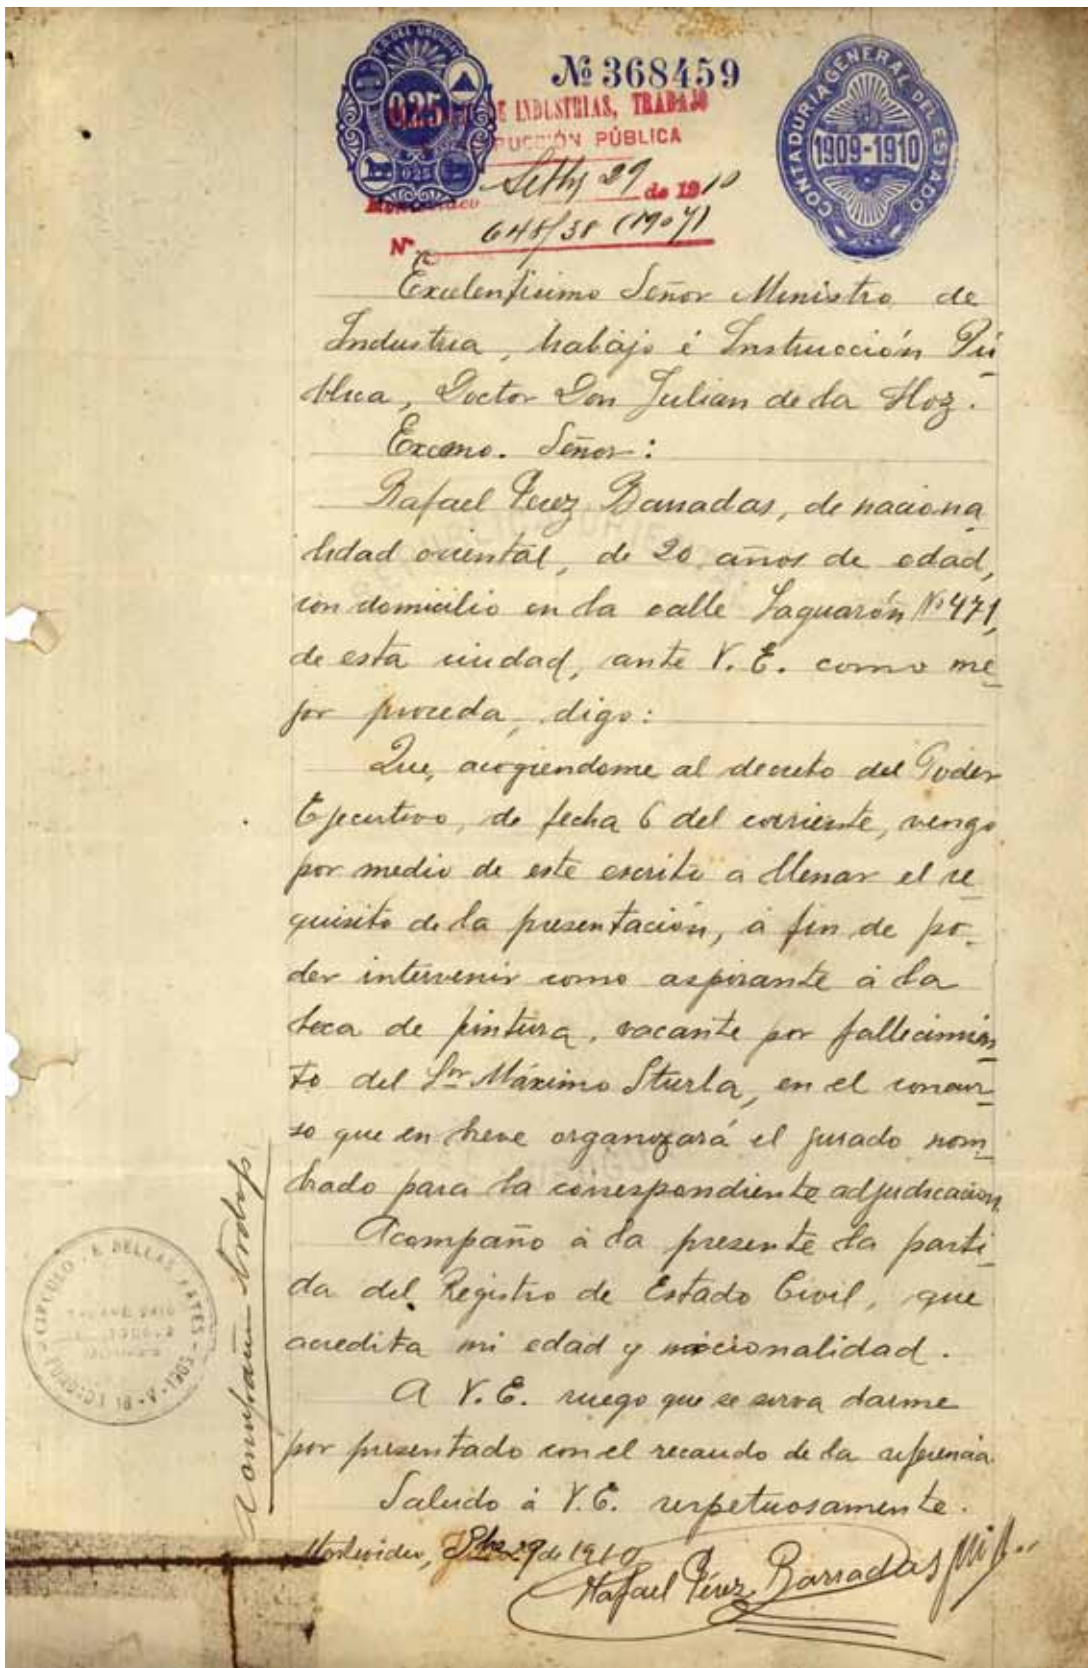 R.O. DEL URUGUAY
025
025
Nº 368459
DE INDUSTRIAS, TRABAJO
INSTRUCCIÓN PÚBLICA
CONTADURIA GENERAL DEL ESTADO
1909-1910
29 de 1910
Montevideo
Nº 648/38 (1907)
Excelentísimo Señor Ministro de
Industria, trabajo é Instrucción Pú
blica, Doctor Don Julian de la Hoz.
Excmo. Señor:
Rafael Perez Barradas, de naciona
lidad oriental, de 20 años de edad,
con domicilio en la calle Yaguarón Nº 471,
de esta ciudad, ante V. E. como me
jor proceda, digo:
Que, acogiendome al decreto del Poder
Ejecutivo, de fecha 6 del corriente, vengo
por medio de este escrito a llenar el re
quisito de la presentación, á fin de po-
der intervenir como aspirante á la
beca de pintura, vacante por fallecimien
to del Sor Máximo Sturla, en el concur
so que en breve organizará el jurado nom
brado para la correspondiente adjudicación
Acompaño á la presente la parti
da del Registro de Estado Civil, que
acredita mi edad y nacionalidad.
A V. E. ruego que se sirva darme
por presentado con el recaudo de la referencia.
Saludo á V. E. respetuosamente.
Montevideo, 29 de 1910
Rafael Pérez Barradas
CIRCULO BELLAS ARTES